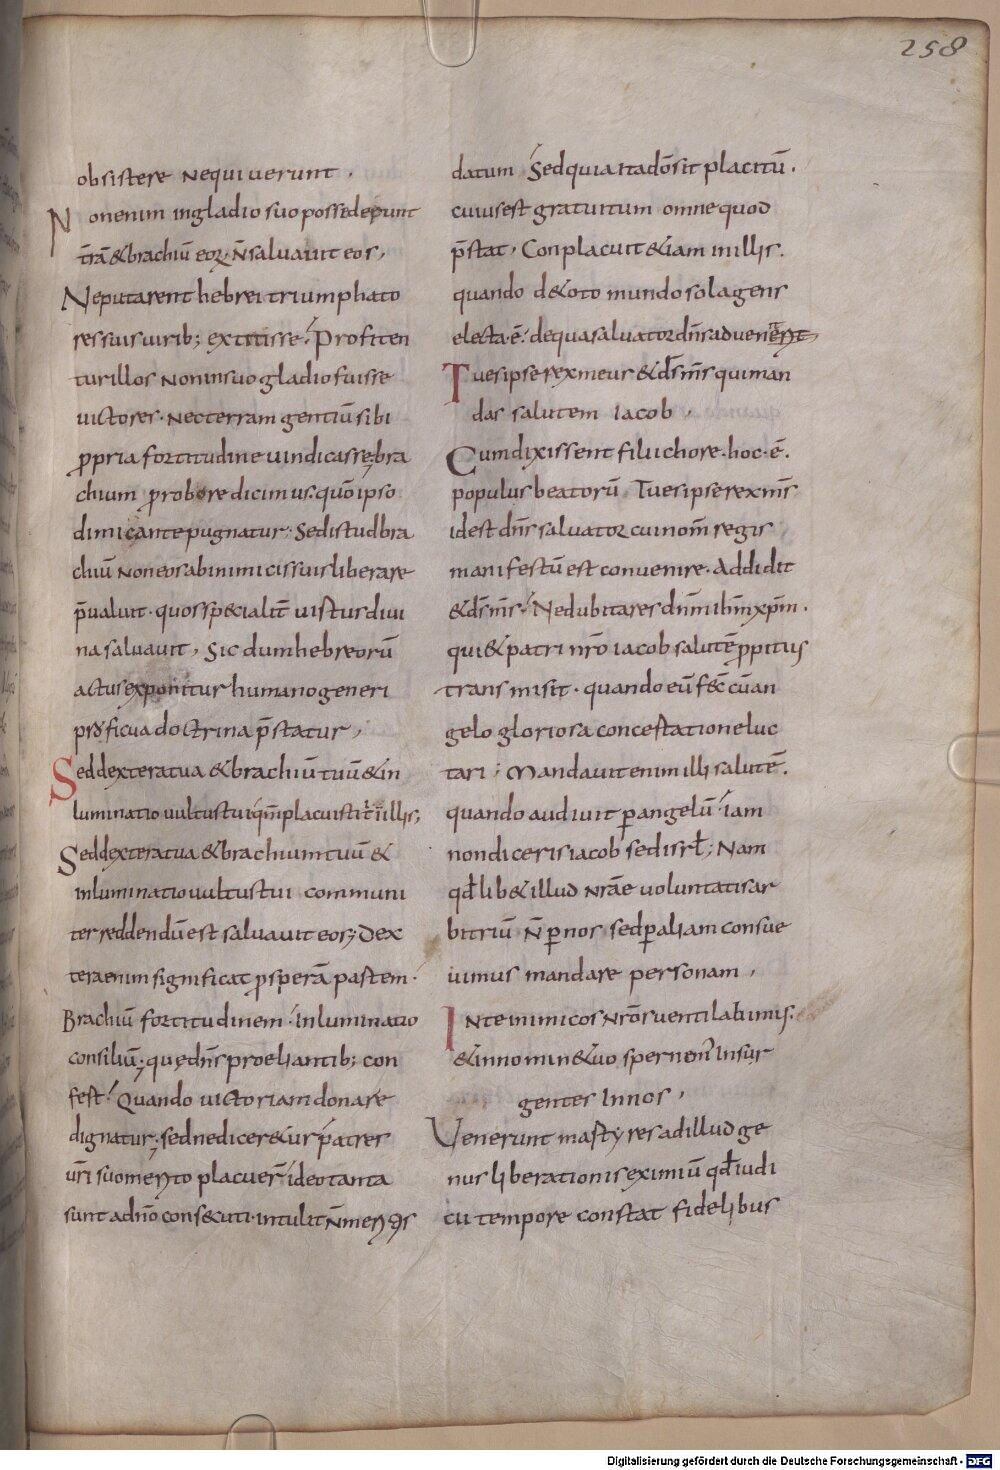 258
obsistere nequiverunt.
Non enim in gladio suo possederunt
trā & brachiū eoꝝ n̄ salvavit eos,
Ne putarent hebrei triumphato
res suis virib; extitisse. Profiten
tur illos non in suo gladio fuisse
victores. nec terram gentiū sibi
ꝓpria fortitudine vindicasse, bra
chium ꝓ robore dicimus. quō ipso
dimicante pugnatur. Sed istud bra
chiū non eos ab inimicis suis liberare
p̄valuit. quos sp&ialit̄ virtus divi
na salvavit, Sic dum hebreorū
actus exponitur humano generi
proficua doctrina p̄statur,
Sed dextera tua & brachiū tuū & in
luminatio vultus tui. qm̄ placuisti in illis;
Sed dextera tua & brachium tuū &
inluminatio vultus tui communi
ter reddendū est salvavit eos; Dex
tera enim significat ꝓsperā partem.
Brachiū fortitudinem. inluminatio
consiliū; quę dn̄s proeliantib; con
fert. Quando victoriam donare
dignatur; sed ne dicer&ur patres
vr̄i suo merito placuer̄ ideo tanta
sunt ad dn̄o consecuti. intulit n̄ meritis
datum Sed quia ita dō sit placitū.
cuius est gratuitum omne quod
p̄stat. Conplacuit & iam in illis.
quando de toto mundo sola gens
electa ē. de qua salvator dn̄s adveniret
Tu es ipse rex meus & ds̄ ms̄ qui man
das salutem iacob,
Cum dixissent filii chore. hoc. ē.
populus beatorū Tu es ipse rex ms̄
id est dn̄s salvator cui nom̄ regis
manifestū est convenire. Addidit
& ds̄ ms̄. Ne dubitares dn̄m ihm̄ xp̄m.
qui & patri nr̄o iacob salutē ꝓpitius
transmisit. quando eū fec̄ cū an
gelo gloriosa concertatione luc
tari; Mandavit enim illi salutē.
quando audivit ꝑ angelū. iam
non diceris iacob sed isrł; Nam
qđ lib& illud nr̄ae voluntatis ar
bitriū n̄ ꝑ nos sed ꝑ aliam consue
vimus mandare personam,
In te inimicos nr̄os ventilabimus.
& in nomine tuo spernem̄ insur
gentes in nos,
Venerunt martyres ad illud ge
nus liberationis eximiū qđ iudi
cii tempore constat fidelibus
Digitalisierung gefördert durch die Deutsche Forschungsgemeinschaft - DFG